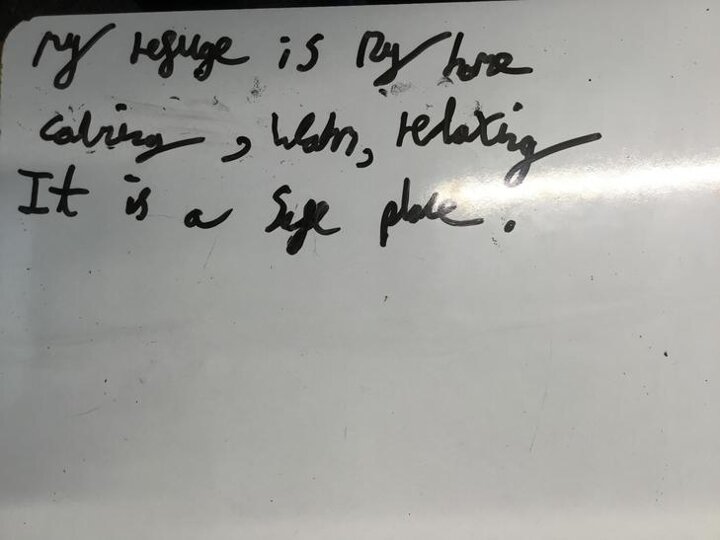 My refuge is My home
calming, warm, relaxing
It is a safe place.